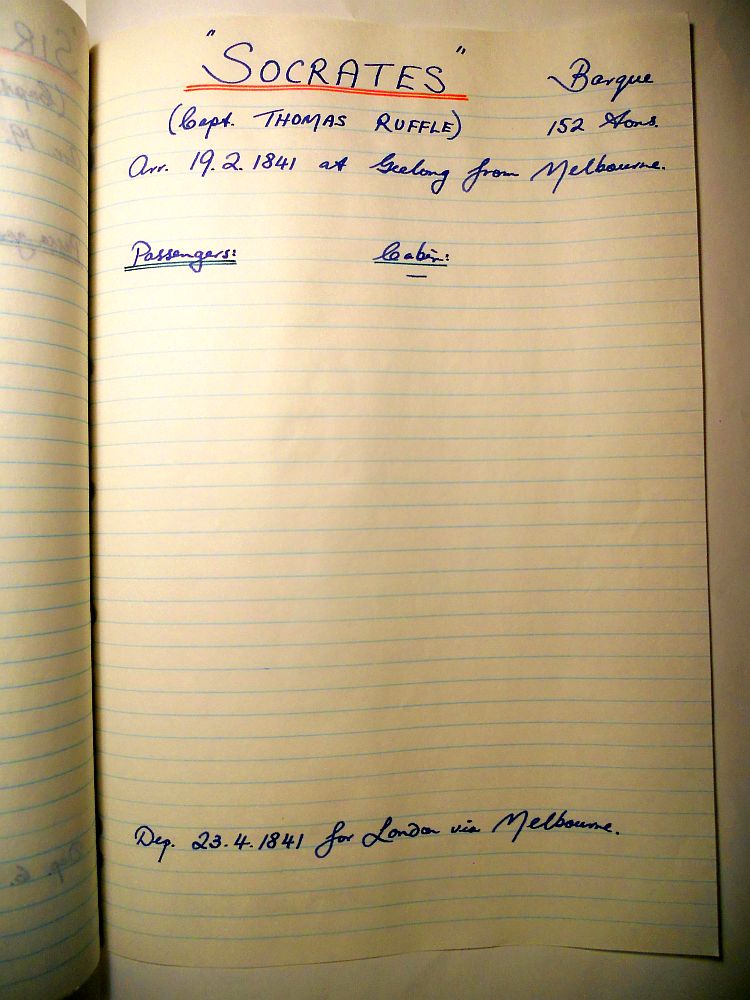 "SOCRATES" Barque
(Capt. THOMAS RUFFLE) 152 tons.
Arr. 19.2.1841 at Geelong from Melbourne.
Passengers: Cabin:
—
Dep. 23.4.1841 for London via Melbourne.
"SIR
(Capt.
Arr. 19.
Passengers
Dep. 6.